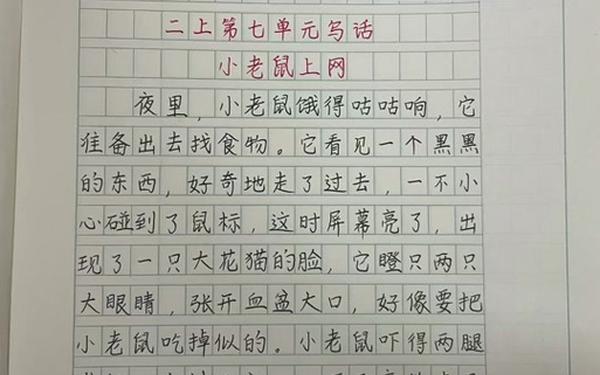 二上第七单元写话
小老鼠上网
夜里，小老鼠饿得咕咕响，它
准备出去找食物。它看见一个黑黑
的东西，好奇地走了过去，一不小
心碰到了鼠标，这时屏幕亮了，出
现了一只大花猫的脸，它瞪只两只
大眼睛，张开血盆大口，好像要把
小老鼠吃掉似的。小老鼠吓得两腿